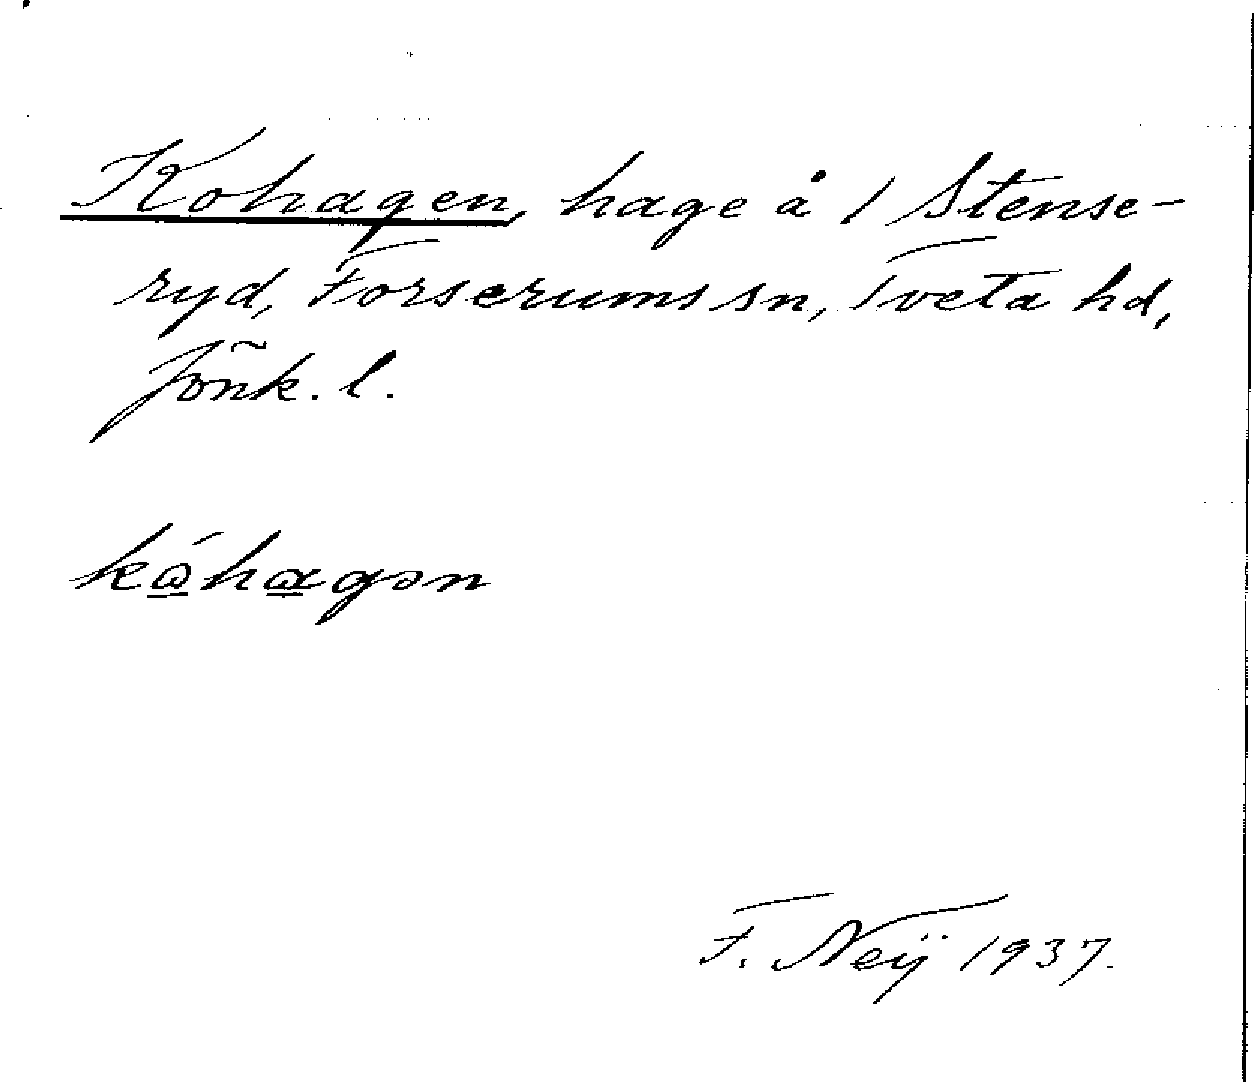 Kohagen, hage å 1 Stense-
ryd, Forserums sn, Tveta hd,
Jönk. l.
kɷ́hɑgən
F. Neÿ 1937.